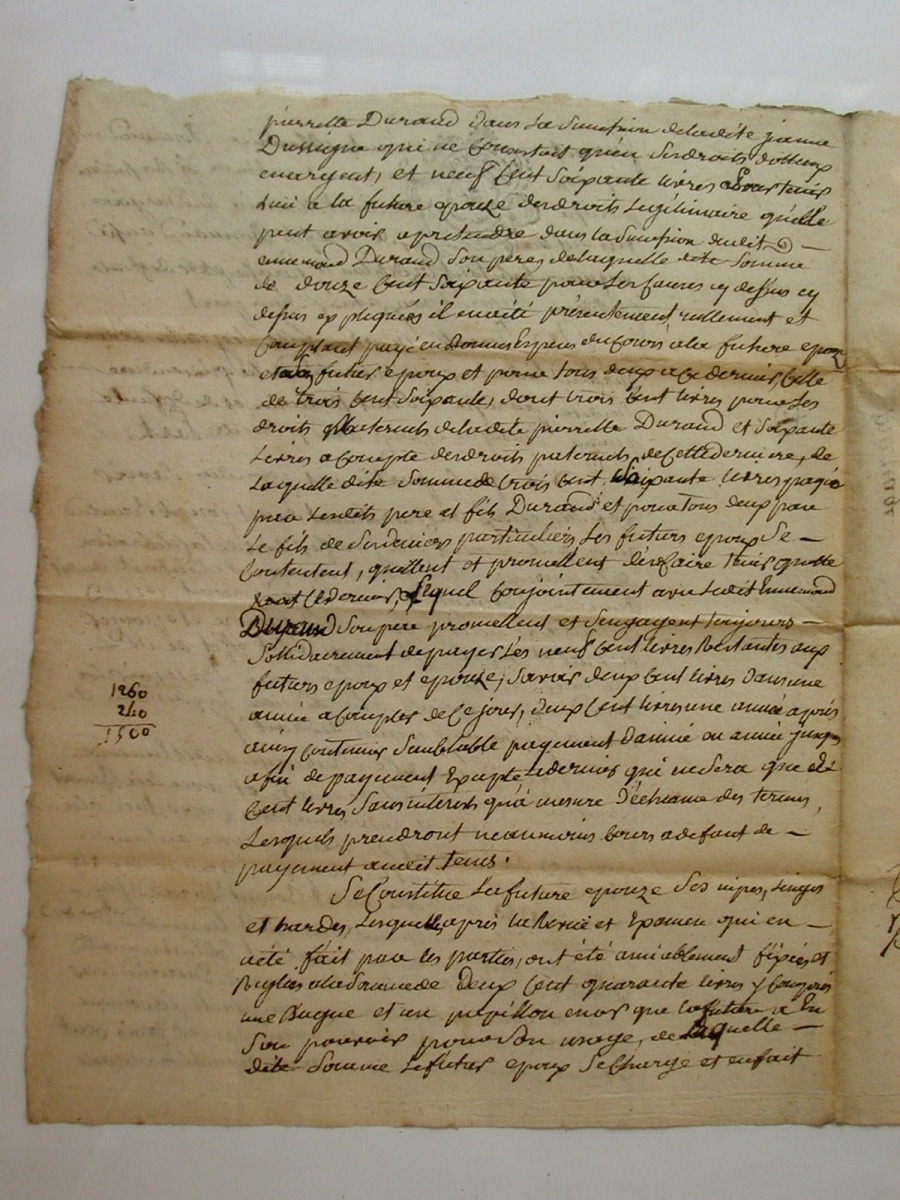 pierrette Durand dans la succession de ladite jeanne
Dussigne qui ne consistait qu'en ses droits dotteaux
en argent, et neuf cent soixante livres pour tenir
lieu à la future epouze des droits legitimaire qu'elle
peut avoir a pretendre dans la succession dudit –
ennemond Durand son père, de laquelle dite somme
de douze cent soixante pour les causes cy dessus cy
dessus expliquées il en a été présentement réellement et
comptant payé en bonnes Espèces du Cours a la future epouze
et au futur epoux et pour tous deux a ce dernier, celle
de trois cent soixante, dont trois cent livres pour les
droits Maternels de ladite pierrette Durand et soixante
livres a compte des droits paternels de cette derniere, de
laquelle dite somme de trois cent soixante livres payée
par lesdits pere et fils Durand et pour tous deux par
le fils de ses deniers particuliers les futurs epoux se –
contentent, quittent et promettent d'en faire tenir quitte
ce dernier, Lequel conjointement avec ledit Ennemond
Durand son pere promettent et s'engagent toujours –
sollidairement de payer les neuf cent livres Restantes aux
futurs epoux et epouze, savoir deux cent livres dans une
année a compter de ce jour, deux cent livres une année après
ainsy continuer semblable payement d'année en année jusques
a fin de payement Excepté le dernier qui ne sera que de
cent livres sans interets qu'a mesure d'échéance des termes,
Lesquels prendront neanmoins cours a defaut de –
payement audit tems.
1260
240
1500
Se Constitue la future epouze ses nipes, linges
et hardes, lesquelles après la Revue et Examen qui en –
a été fait par les parties, ont été amiablement fixées et
Reglées a la somme de Deux cent quarante livres y compris
une Bague et un papillon en or que la future a En
son pouvoir pour son usage, de laquelle –
dite somme le futur epoux se charge et en fait